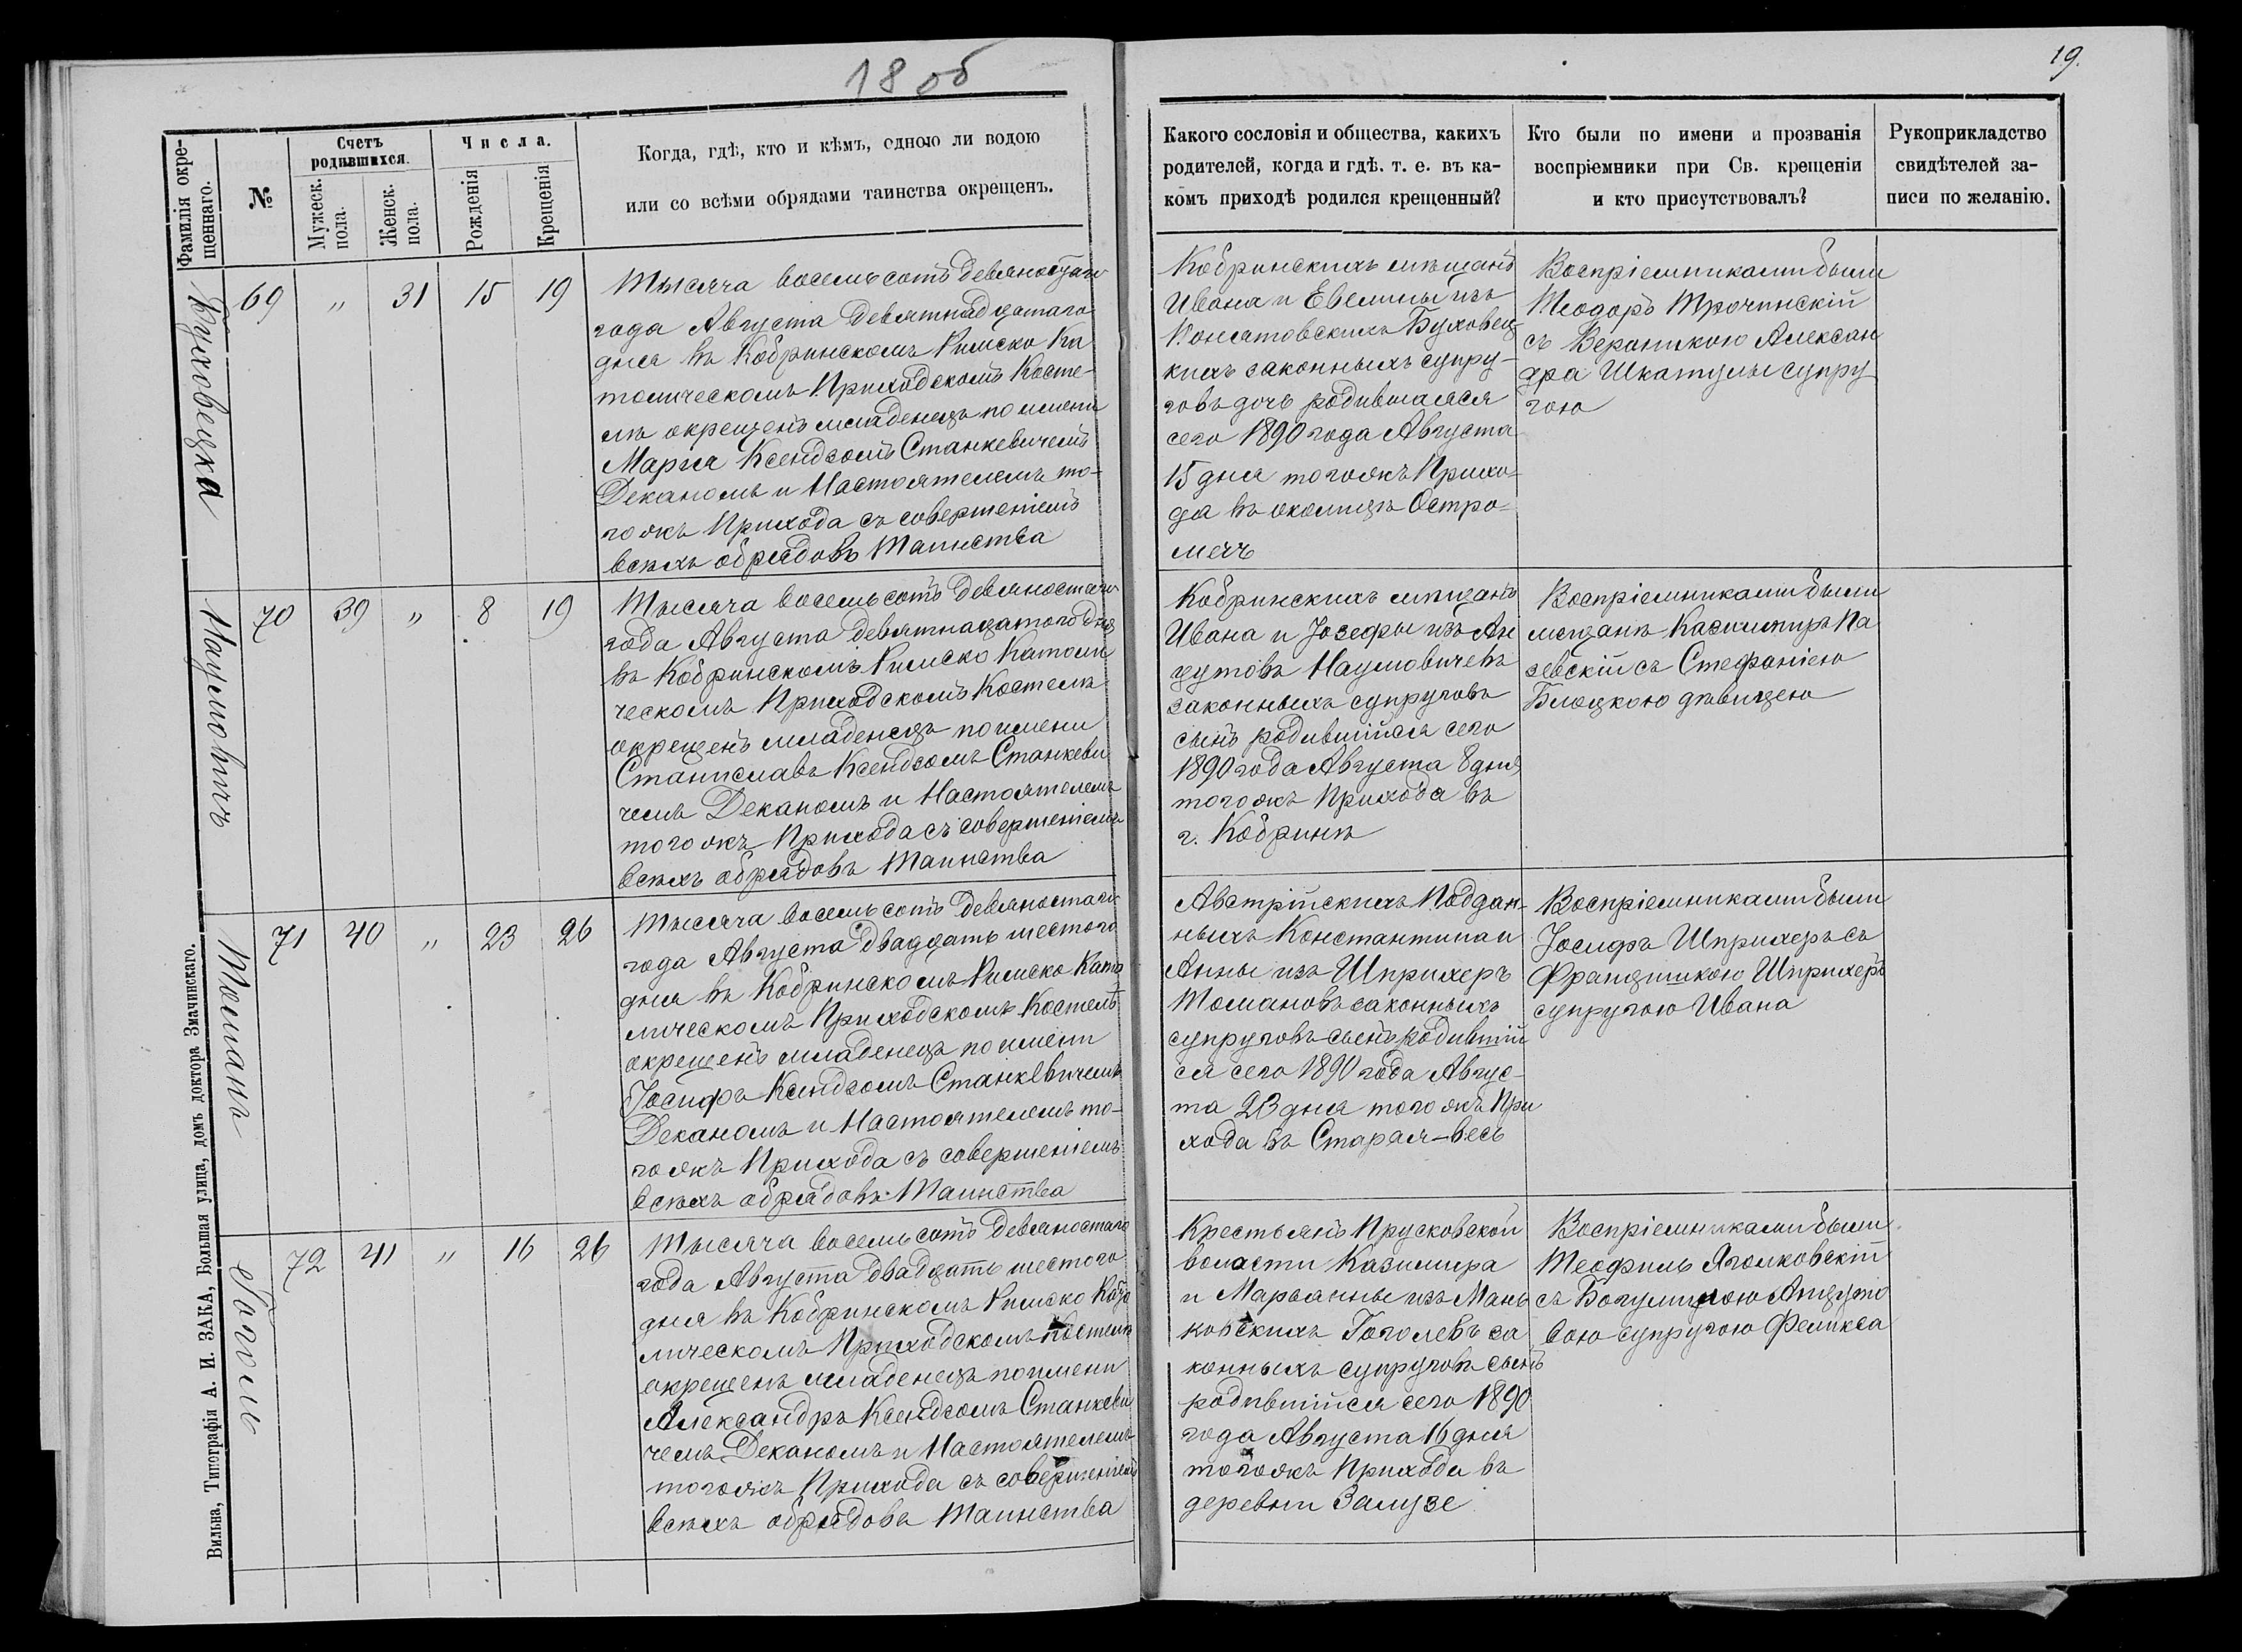 18 об
19.
Фамилія окре-
щеннаго.
№
Счетъ
родившихся.
Мужеск.
пола.
Женск.
пола.
Числа.
Рожденія
Крещенія
Когда, гдѣ, кто и кѣмъ, одною ли водою
или со всѣми обрядами таинства окрещенъ.
Какого сословія и общества, какихъ
родителей, когда и гдѣ. т. е. въ ка-
комъ приходѣ родился крещенный?
Кто были по имени и прозванія
воспріемники при Св. крещеніи
и кто присутствовалъ?
Рукоприкладство
свидѣтелей за-
писи по желанію.
Буховецка
69 " 31 15 19
Тысяча восемьсотъ девяностаго
года Августа девятнадцатаго
дня въ Кобринскомъ Римско Ка
толическомъ Приходскомъ Косте-
лѣ окрещенъ младенецъ по имени
Марія Ксендзомъ Станкевичемъ
Деканомъ и Настоятелемъ то-
гожъ Прихода съ совершеніемъ
всѣхъ обрядовъ Таинства
Кобринскихъ мѣщанъ
Ивана и Евелины изъ
Буховец-
кихъ законныхъ супру-
говъ дочь родившаяся
сего 1890 года Августа
15 дня тогожъ Прихо-
да въ околицѣ Остро-
мечъ
Воспріемниками были
Теодоръ Трочинскій
съ Вероникою Алексан
дра Шкатулы супру
гою
Наумовичъ
70 39 " 8 19
Тысяча восемьсотъ девяностаго
года Августа девятнацатого дня
въ Кобринскомъ Римско Католи
ческомъ Приходскомъ Костелѣ
окрещенъ младенецъ по имени
Станиславъ Ксендзомъ Станкеви
чемъ Деканомъ и Настоятелемъ
тогожъ Прихода съ совершеніемъ
всѣхъ обрядовъ Таинства
Кобринскихъ мѣщанъ
Ивана и Іозефы изъ Ан
цутовъ Наумовичевъ
законныхъ супруговъ
сынъ родившійся сего
1890 года Августа 8 дня
тогожъ Прихода въ
г. Кобринѣ
Воспріемниками были
мещанъ Казимиръ Ла
зевскій съ Стефаніею
Блоцкою дѣвицею
Томанъ
71 40 " 23 26
Тысяча восемьсотъ девяностаго
года Августа двадцать шестого
дня въ Кобринскомъ Римско Като
лическомъ Приходскомъ Костелѣ
окрещенъ младенецъ по имени
Іосифъ Ксендзомъ Станкевичемъ
Деканомъ и Настоятелемъ то-
гожъ Прихода съ совершеніемъ
всѣхъ обрядовъ Таинства
Австрійскихъ Поддан-
ныхъ Константина и
Анны изъ Шприхеръ
Томановъ законныхъ
супруговъ сынъ родившій
ся сего 1890 года Авгус-
та 23 дня тогожъ При
хода въ Старая-весь
Воспріемниками были
Іосифъ Шприхеръ съ
Францишкою Шприхеръ
супругою Ивана
Гоголь
72 41 " 16 26
Тысяча восемьсотъ девяностаго
года Августа двадцать шестого
дня въ Кобринскомъ Римско Като
лическомъ Приходскомъ Костелѣ
окрещенъ младенецъ по имени
Александръ Ксендзомъ Станкеви
чемъ Деканомъ и Настоятелемъ
тогожъ Прихода съ совершеніемъ
всѣхъ обрядовъ Таинства
Крестьянъ Прусковской
волости Казимира
и Марьанны изъ Мань
ковскихъ Гоголевъ за
конныхъ супруговъ сынъ
родившійся сего 1890
года Августа 16 дня
тогожъ Прихода въ
деревни Залузе
Воспріемниками были
Теофиль Яголковскій
съ Богумилою Анцуто
вою супругою Феликса
Вильна, Типографія А. И. ЗАКА, Большая улица, домъ доктора Змачинскаго.